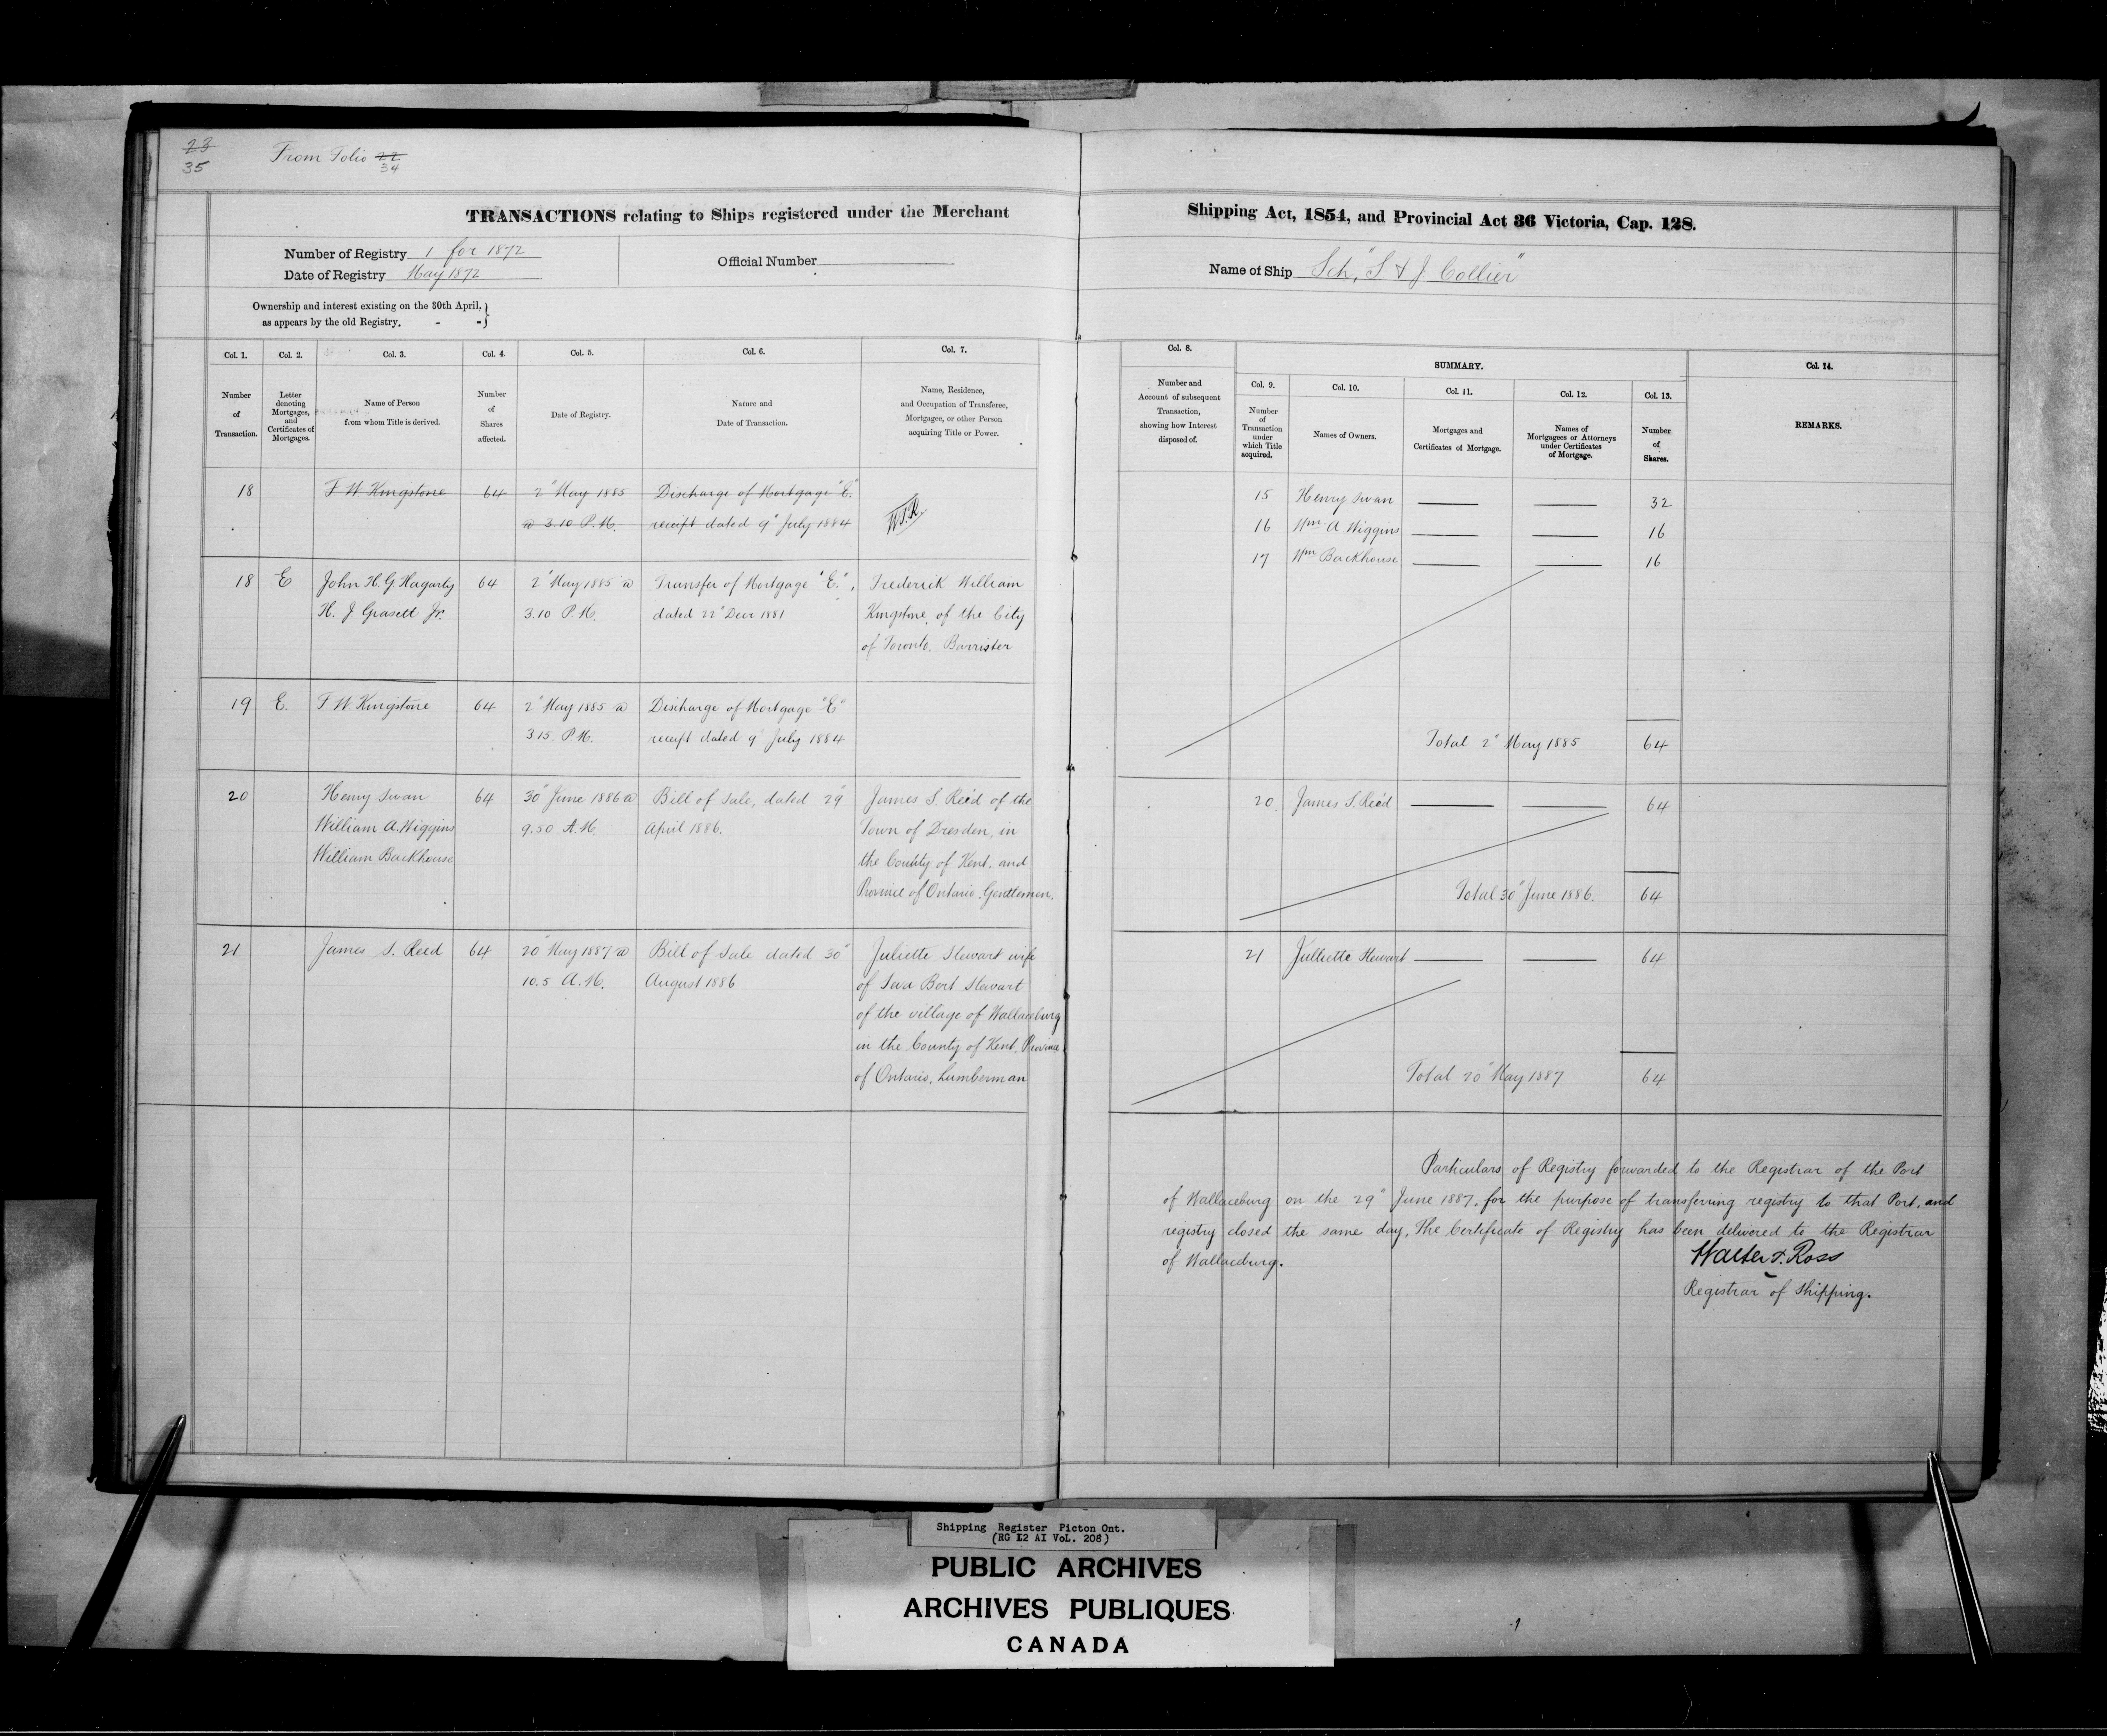 23
35
From Folio 22
34
TRANSACTIONS relating to Ships registered under the Merchant
Number of Registry 1 for 1872
Date of Registry May 1872
Official Number
Ownership and interest existing on the 30th April,
as appears by the old Registry. - -
Col. 1.
Col. 2.
Col. 3.
Col. 4.
Col. 5.
Col. 6.
Col. 7.
Number
of
Transaction.
Letter
denoting
Mortgages,
and
Certificates of
Mortgages.
Name of Person
from whom Title is derived.
Number
of
Shares
affected.
Date of Registry.
Nature and
Date of Transaction.
Name, Residence,
and Occupation of Transferee,
Mortgagee, or other Person
acquiring Title or Power.
18 F W Kingstone 64 2" May 1885 Discharge of Mortgage "E."
@ 3.10 P.M. receipt dated 9" July 1884
18 E John H. G. Hagarty 64 2" May 1885 @ Transfer of Mortgage "E.", Frederick William
H. J. Grasett Jr. 3.10 P.M. dated 22" Decr 1881 Kingstone, of the City
of Toronto. Barrister
19 E. F W Kingstone 64 2" May 1885 @ Discharge of Mortgage "E"
3.15. P.M. receipt dated 9" July 1884
20 Henry Swan 64 30" June 1886 @ Bill of Sale, dated 29" James S. Reed of the
William A. Wiggins 9.50 A.M. April 1886. Town of Dresden, in
William Backhouse the County of Kent. and
Province of Ontario. Gentleman.
21 James S. Reed 64 20" May 1887 @ Bill of Sale dated 30" Juliette Stewart wife
10.5 A.M. August 1886 of Bert Stewart
of the village of Wallaceburg
in the County of Kent, Province
of Ontario, Lumberman
Shipping Act, 1854, and Provincial Act 36 Victoria, Cap. 128.
Name of Ship Sch, "S & J Collier"
Col. 8.
SUMMARY.
Col. 14.
Number and
Account of subsequent
Transaction,
showing how Interest
disposed of.
Col. 9.
Col. 10.
Col. 11.
Col. 12.
Col. 13.
Number
of
Transaction
under
which Title
acquired.
Names of Owners.
Mortgages and
Certificates of Mortgage.
Names of
Mortgagees or Attorneys
under Certificates
of Mortgage.
Number
of
Shares.
REMARKS.
15 Henry Swan 32
16 Wm A Wiggins 16
17 Wm Backhouse 16
Total 2" May 1885 64
20. James S. Reed 64
Total 30" June 1886. 64
21 Julliette Stewart 64
Total 20" May 1887 64
Particulars of Registry forwarded to the Registrar of the Port
of Wallaceburg on the 29" June 1887, for the purpose of transferring registry to that Port, and
registry closed the same day, The Certificate of Registry has been delivered to the Registrar
of Wallaceburg.
Walter T. Ross
Registrar of Shipping.
Shipping Register Picton Ont.
(RG 12 AI VoL. 208)
PUBLIC ARCHIVES
ARCHIVES PUBLIQUES
CANADA